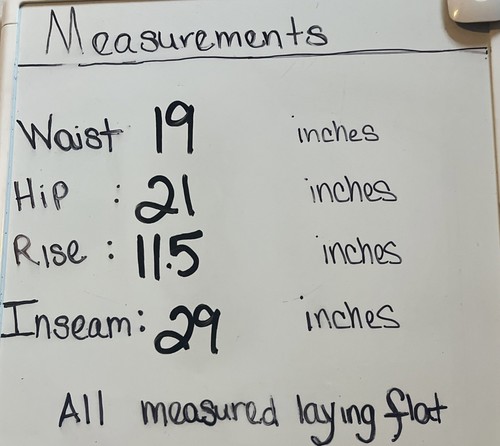 Measurements
Waist 19 inches
Hip : 21 inches
Rise : 11.5 inches
Inseam: 29 inches
All measured laying flat